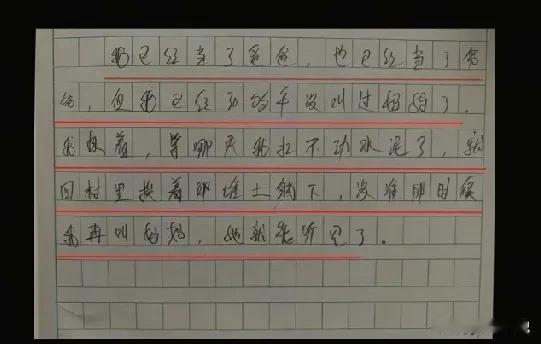 我已经当了爸爸，也已经当了爷
爷，但我已经30的年没叫过妈妈了.
我想着，等哪天我扛不动水泥了，就
回村里挨着那堆土躺下，没准那时候
我再叫妈妈，她就能听见了.